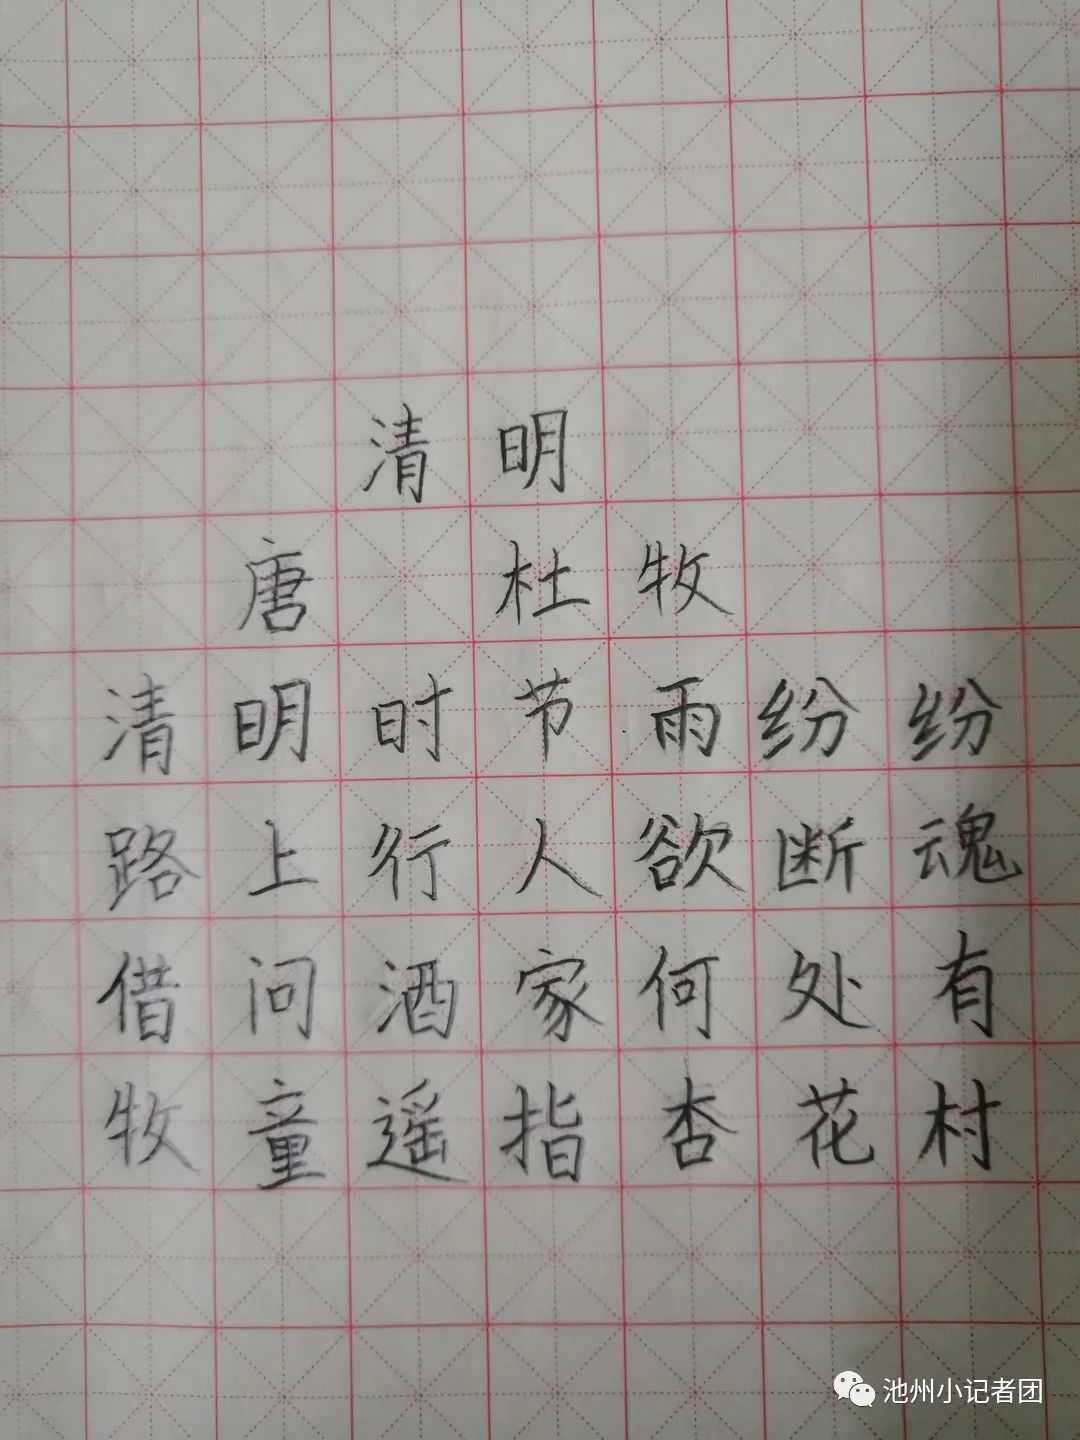 清明
唐 杜牧
清明时节雨纷纷
路上行人欲断魂
借问酒家何处有
牧童遥指杏花村
池州小记者团